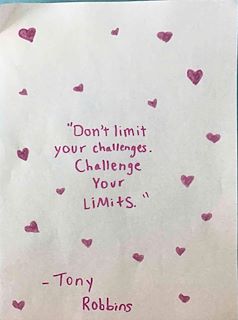 "Don't limit
your challenges.
Challenge
Your
LiMitS."
- Tony
Robbins